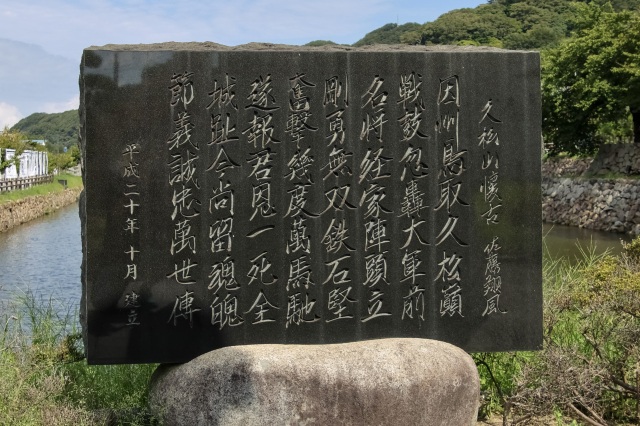 久松山懐古 佐藤翔風
因州鳥取久松巓
戦鼓忽轟大軍前
名将経家陣頭立
剛勇無双鉄石堅
奮撃幾度萬馬馳
遂報君恩一死全
城趾今尚留魂魄
節義誠忠萬世傳
平成二十年十月 建立